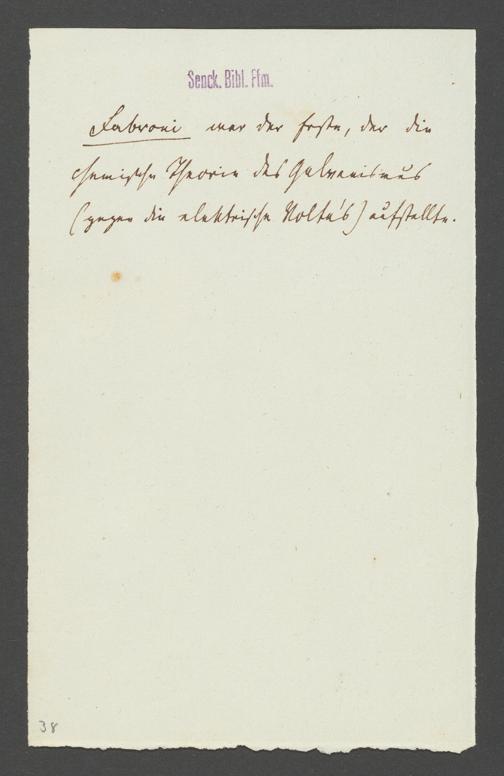 Senck. Bibl. Ffm.
Fabroni war der erste, der die
chemische Theorie des Galvanismus
(gegen die elektrische Volta's) aufstellte.
38